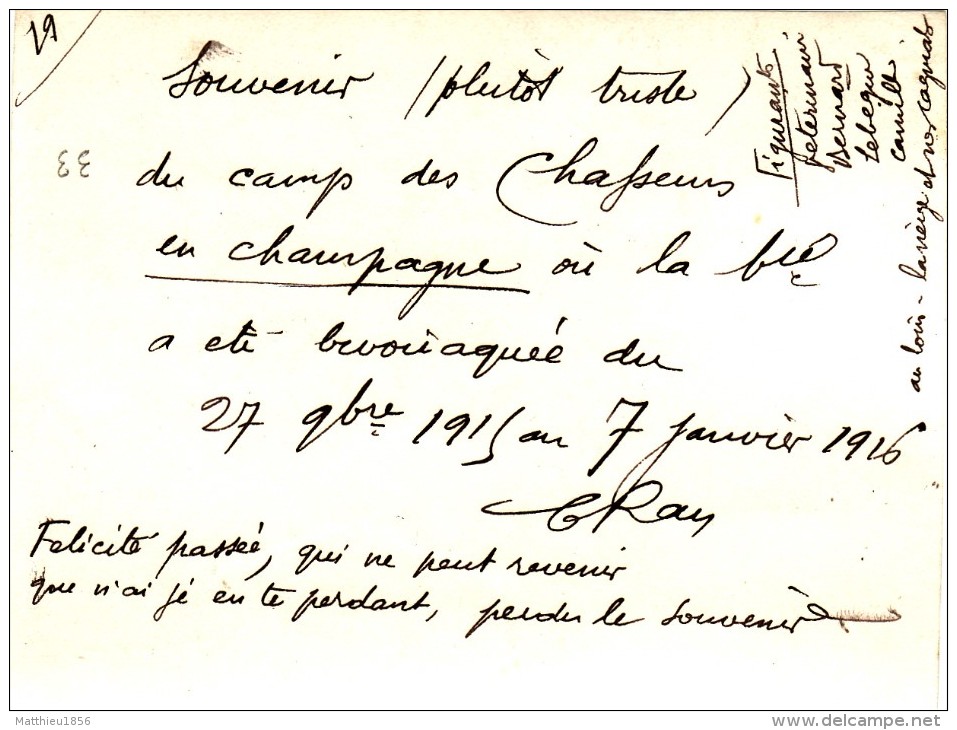 19
Souvenir (plutôt triste)
33
du camp des Chasseurs
en champagne où la bie
a eté bivouaquée du
27 9bre 1915 au 7 Janvier 1916
Felicité passée, qui ne peut revenir
que n'ai je en te perdant, perdu le souvenir
Figurants
petermann
Bernard
Lebegue
camille
au loin - la neige et nos cagnas
Matthieu1856
www.delcampe.net